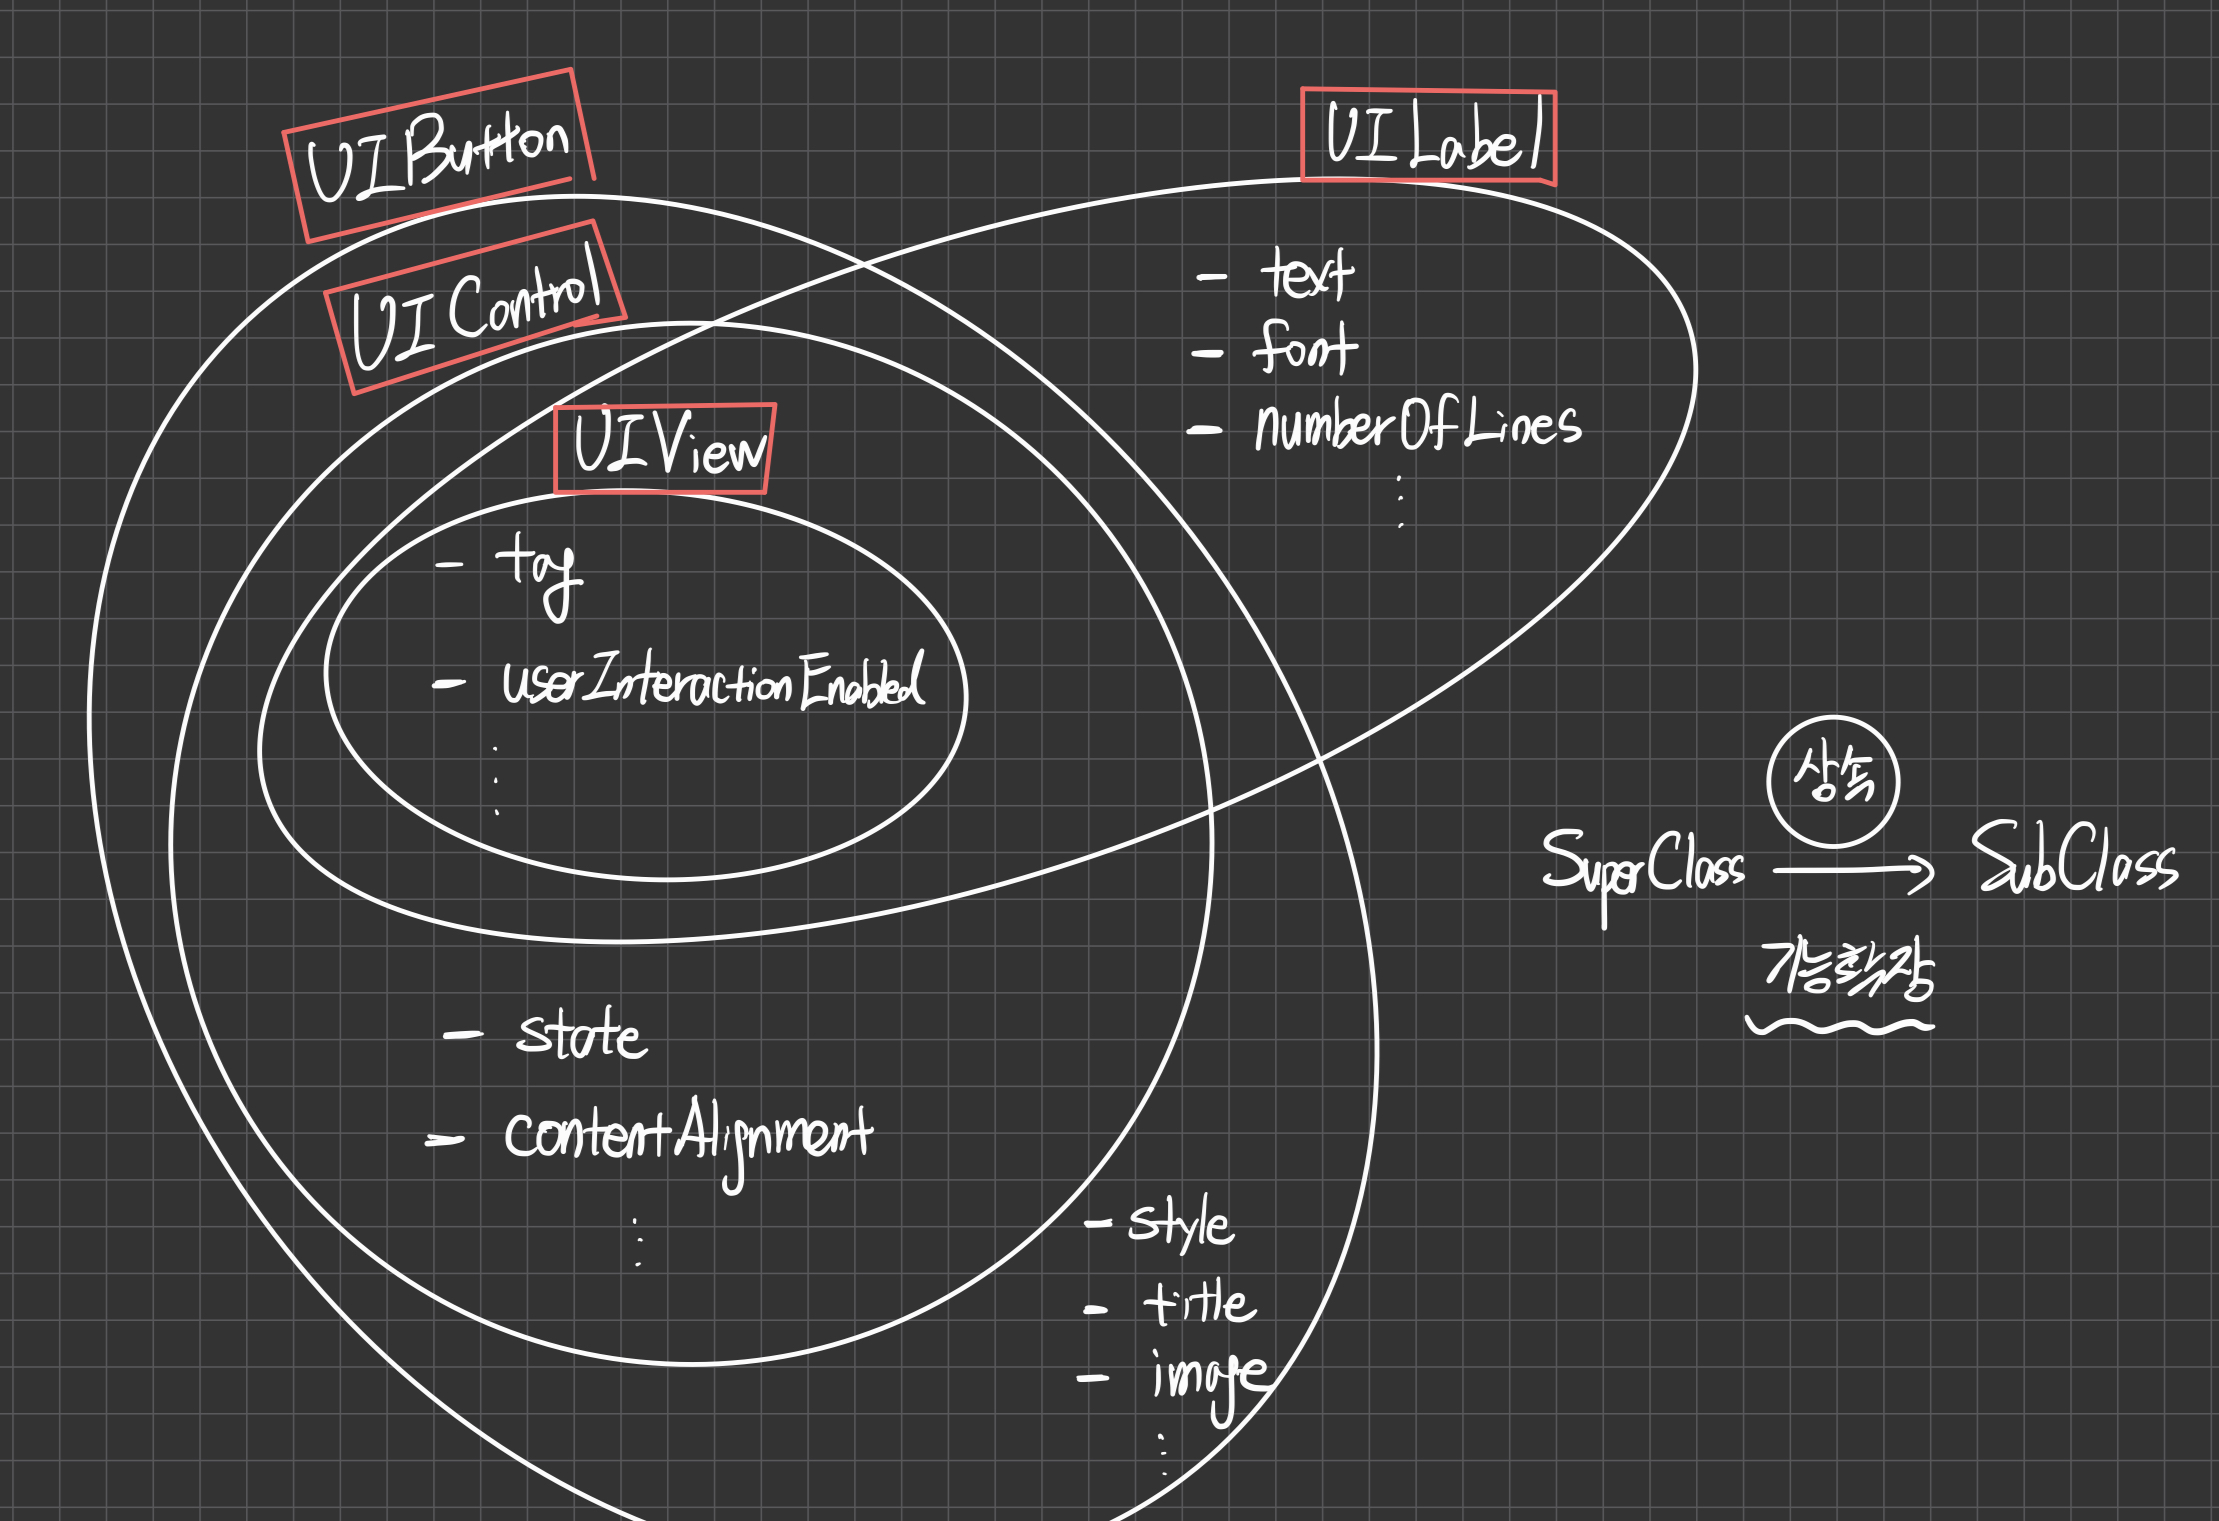 UIButton
UIControl
UIView
- tag
- userInteractionEnabled
UILabel
- text
- font
- numberOfLines
- state
- contentAlignment
- style
- title
- image
상속
SuperClass → SubClass
기능확장